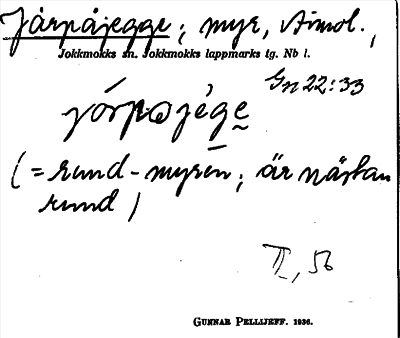 Jårpåjegge; myr, Aimol.,
Jokkmokks sn. Jokkmokks lappmarks tg. Nb l.
Gn 22:33
(= rund-myren; är nästan
rund)
II, 56
GUNNAR PELLIJEFF. 1936.